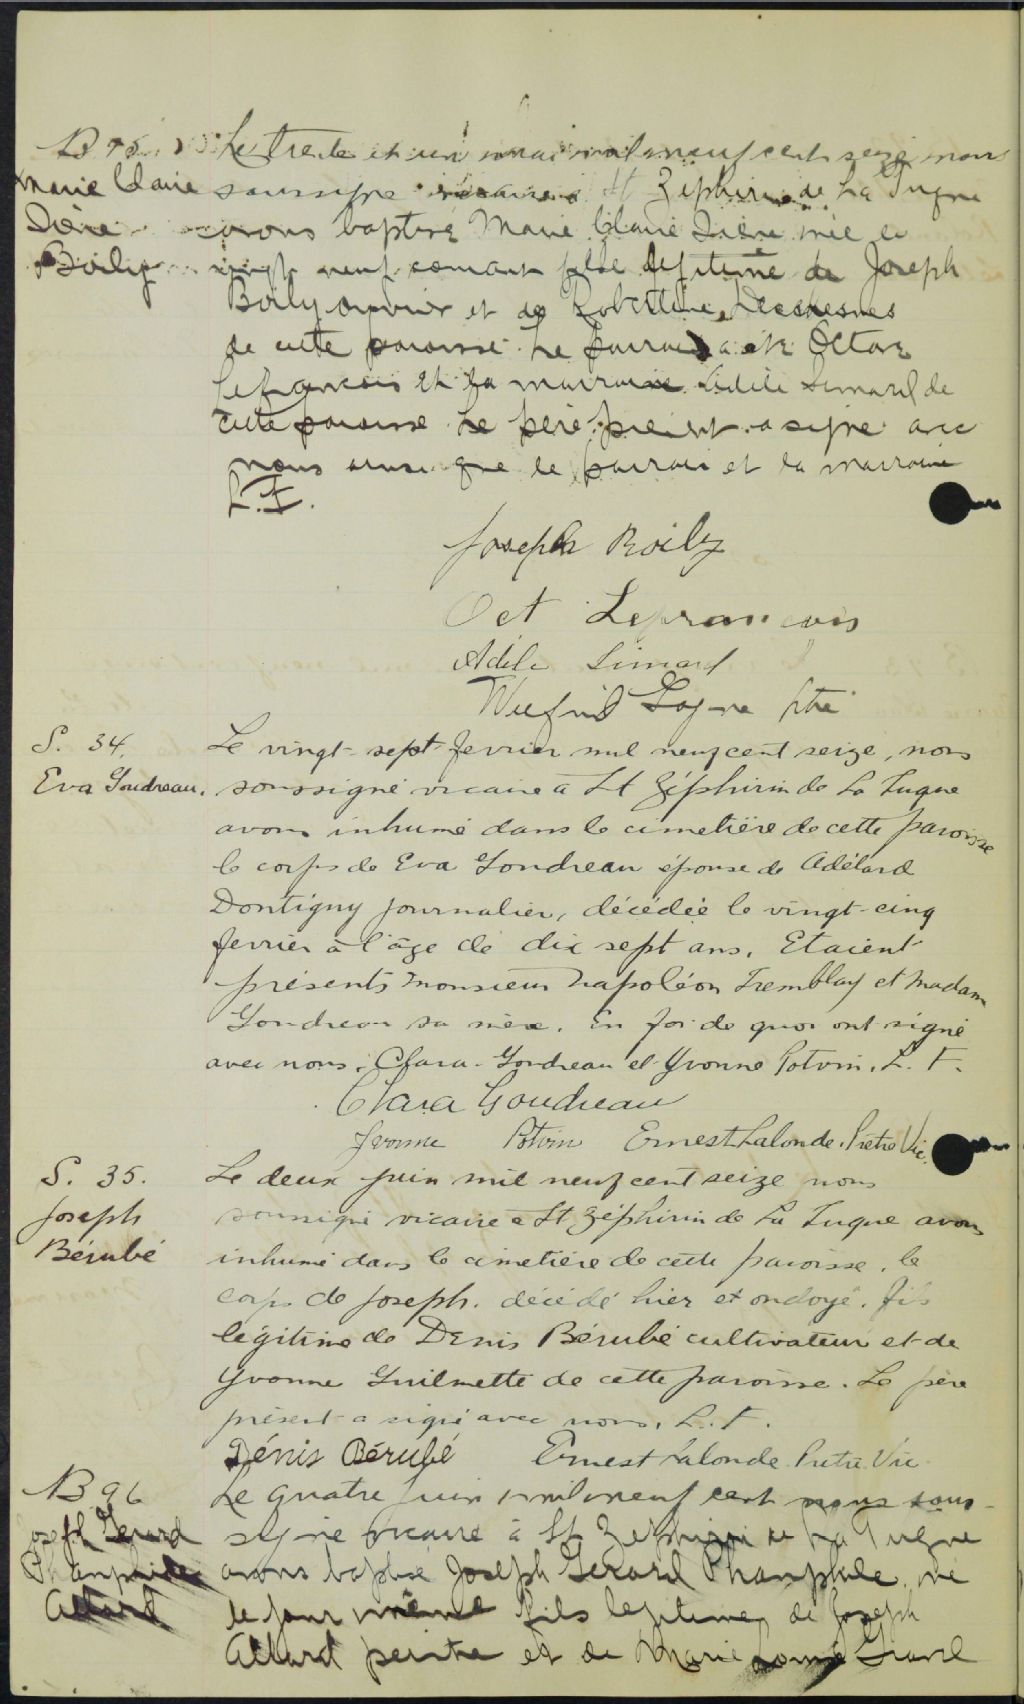 B 95
Marie Claire
Irène
Boily
Le trente et un mai mil neuf cent seize nous
soussigné vicaire à St Zéphirin de La Tuque
avons baptisé Marie Claire Irène née le
vingt neuf courant fille légitime de Joseph
Boily ouvrier et de Robertine Deschesnes
de cette paroisse. Le parrain a été Octave
Lefrancois et la marraine Adèle Simard de
cette paroisse Le père présent a signé avec
nous ainsi que le parrain et la marraine
L. F.
Joseph Boily
Oct Lefrancois
Adèle Simard
Wilfrid Gagne ptre
S. 34.
Eva Goudreau.
Le vingt-sept fevrier mil neuf cent seize, nous
soussigné vicaire à St Zéphirin de La Tuque
avons inhumé dans le cimetière de cette paroisse
le corps de Eva Goudreau épouse de Adélard
Dontigny journalier, décédée le vingt-cinq
fevrier à l'âge de dix sept ans. Etaient
présents monsieur Napoléon Tremblay et Madame
Goudreau sa mère. En foi de quoi ont signé
avec nous: Clara Goudreau et Yvonne Potvin. L. F.
Clara Goudreau
Yvonne Potvin Ernest Lalonde. Prêtre Vic.
S. 35.
Joseph
Bérubé
Le deux juin mil neuf cent seize nous
soussigné vicaire à St Zéphirin de La Tuque avons
inhumé dans le cimetière de cette paroisse, le
corps de Joseph. décédé hier et ondoyé. fils
légitime de Denis Bérubé cultivateur et de
Yvonne Guilmette de cette paroisse. Le père
présent a signé avec nous. L. F.
Dénis Bérubé Ernest Lalonde Prêtre Vic.
B 96
Joseph Gerard
Allard
Le quatre juin mil neuf cent nous sous-
signé vicaire à St Zephirin de La Tuque
avons baptisé Joseph Gerard né
le jour même fils légitime de Joseph
Allard peintre et de Marie Gravel